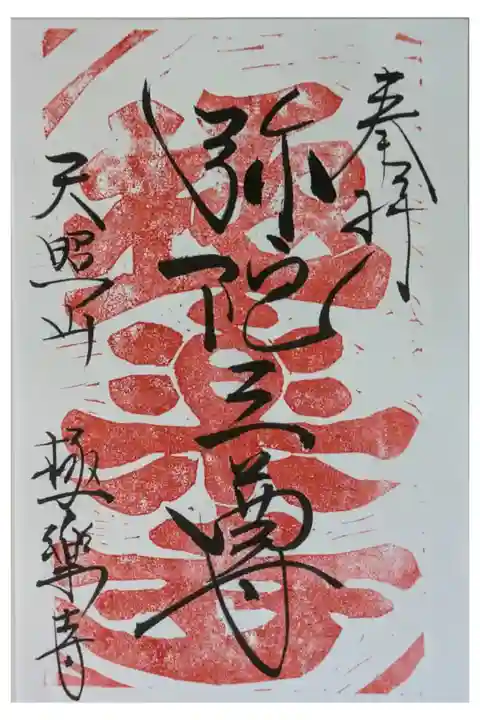 奉拝
弥陀三尊
天照山
極楽寺
極楽寺